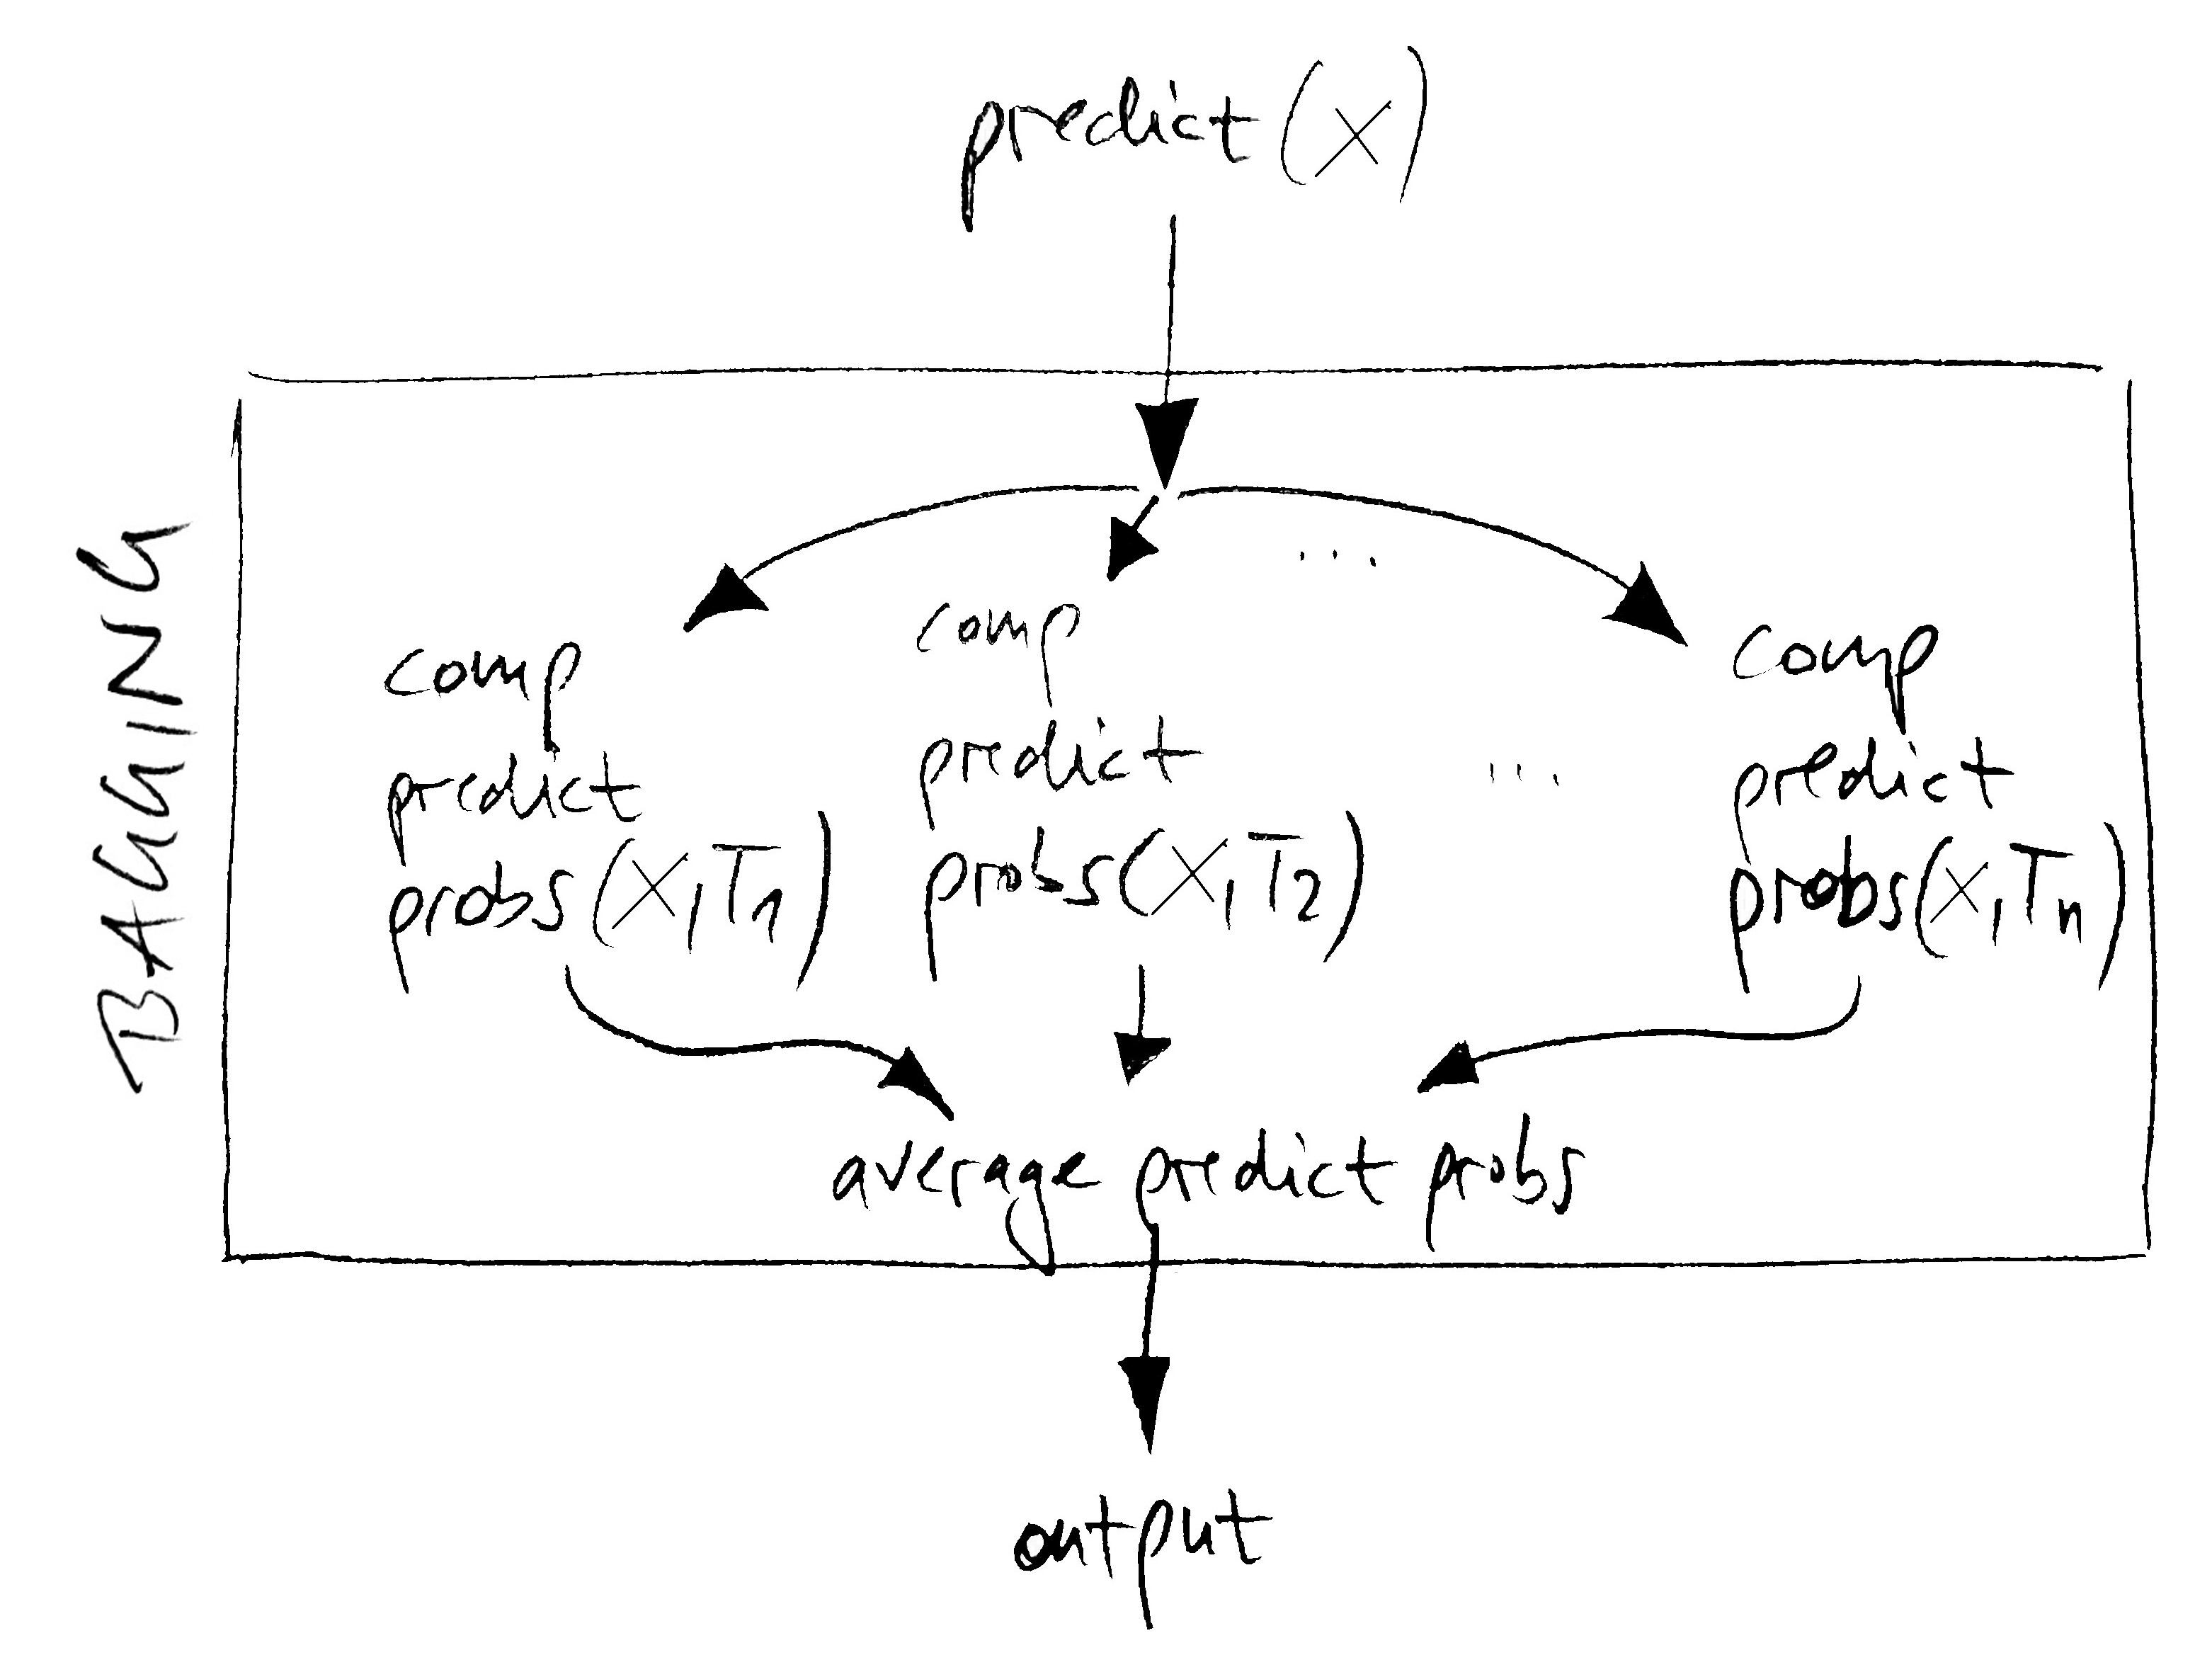 predict(X)
BAGGING
...
comp
predict
probs(X,T1)
comp
predict
probs(X,T2)
...
comp
predict
probs(X,Tn)
average predict probs
output